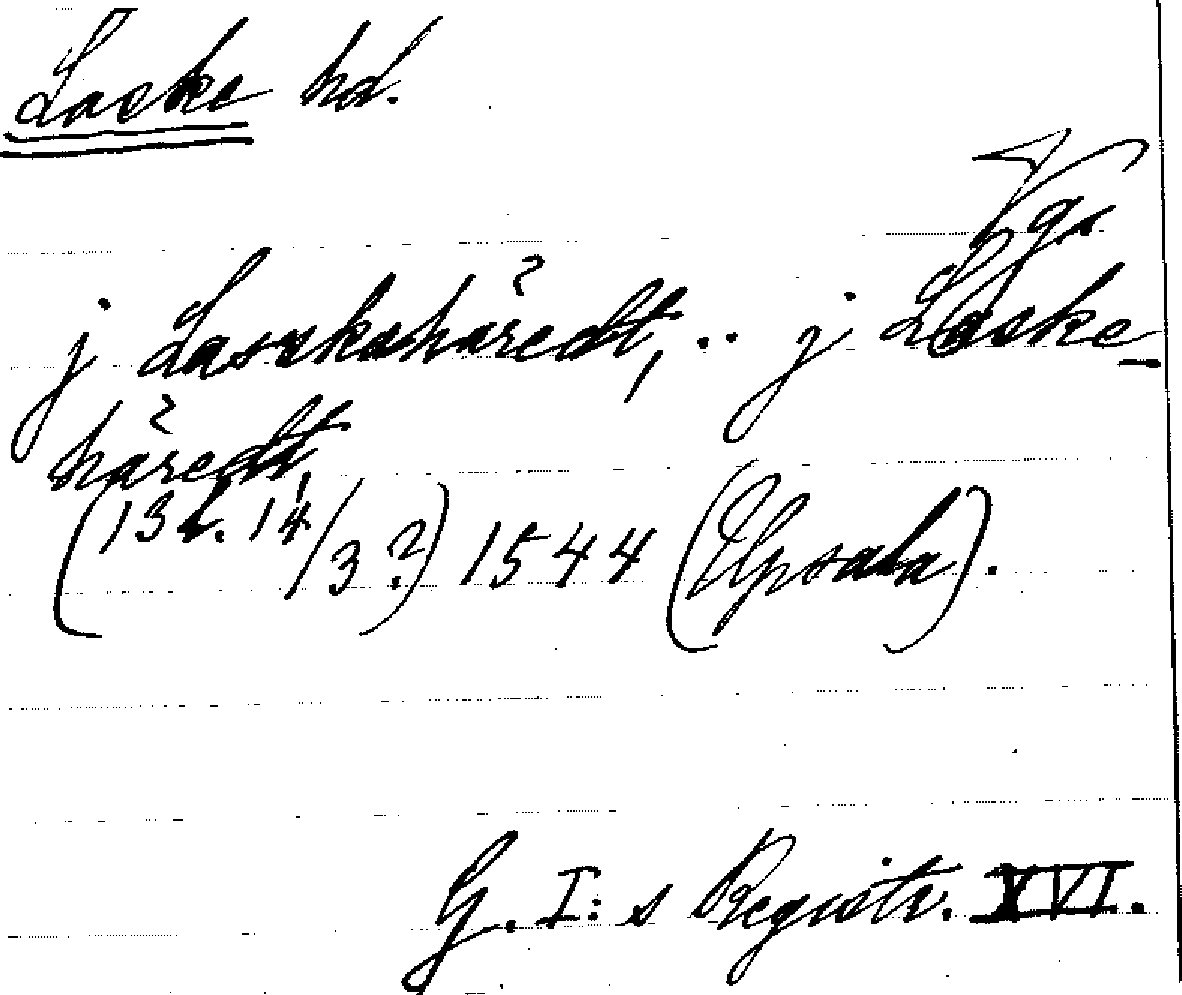 Laske hd.
Vgs
j Laszkahåredt, .. j Laske-
håredt,
(13 l. 14/3 ?) 1544 (Upsala).
G. I:s Registr. XVI.